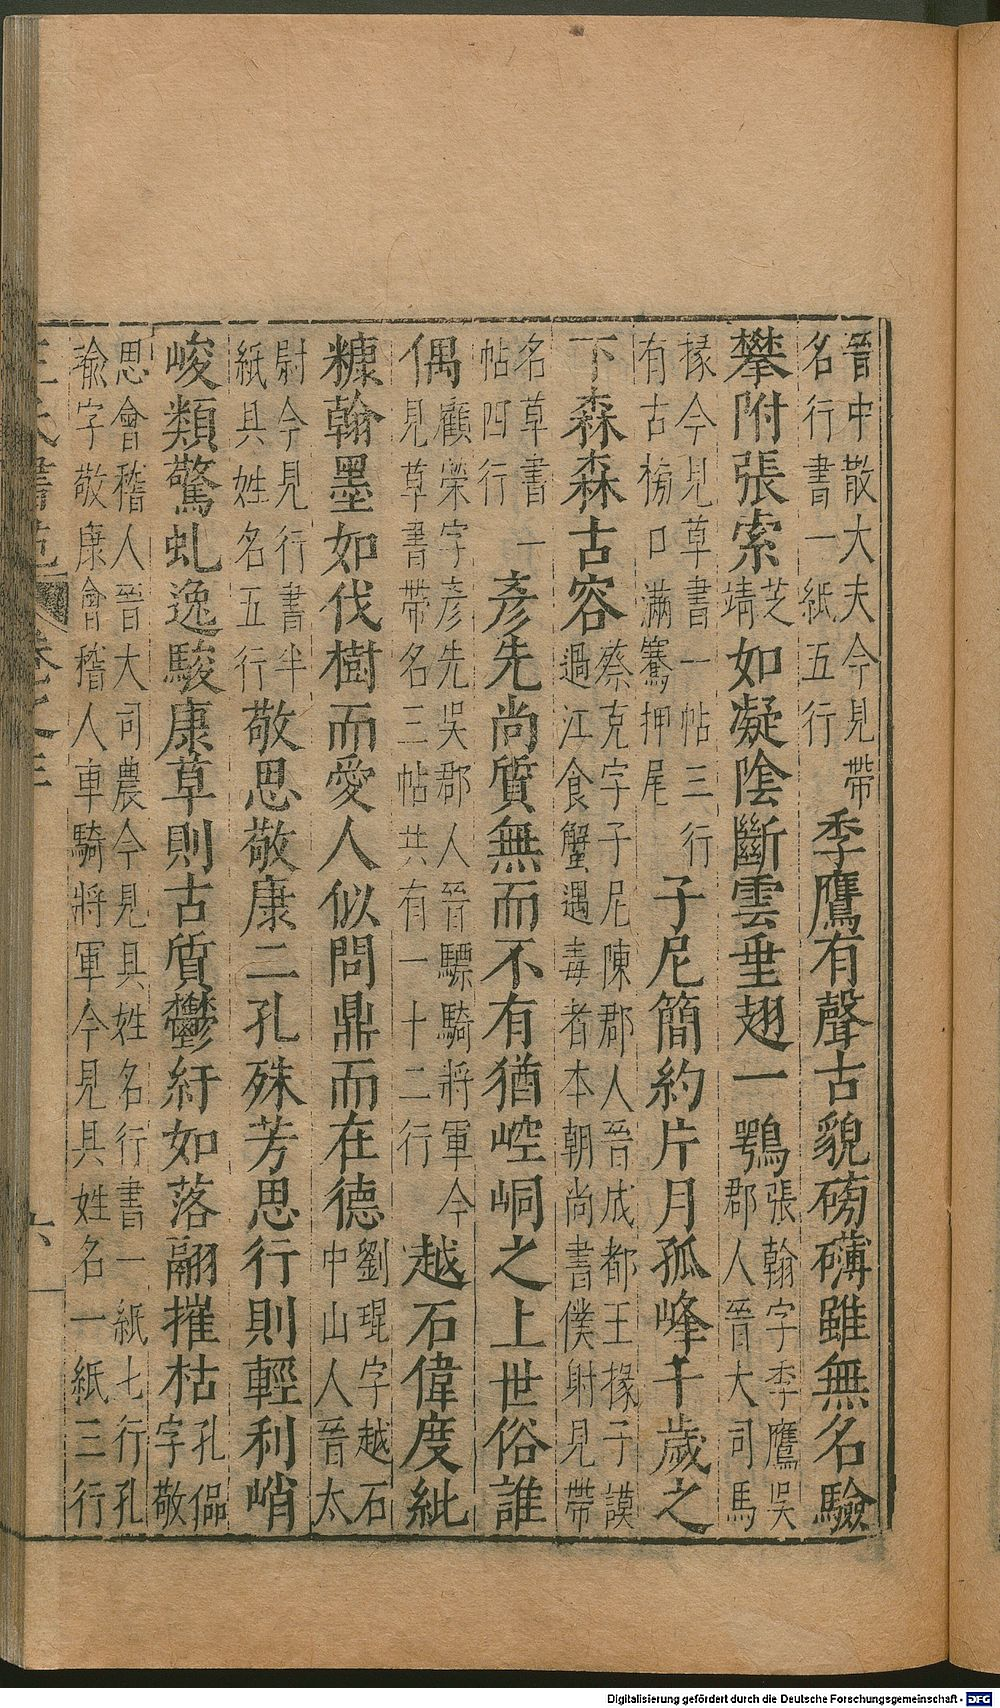 晉中散大夫今見帶
名行書一紙五行
季鷹有聲古貌磅礴雖無名驗
攀附張索芝
靖如凝陰斷雲垂翅一鶚張翰字季鷹吳
郡人晉大司馬
掾今見草書一帖三行
有古榜口滿騫押尾
子尼簡約片月孤峰千歲之
下森森古容蔡克字子尼陳郡人晉成都王掾子謨
過江食蟹遇毒者本朝尚書僕射見帶
名草書一
帖四行
彥先尚質無而不有猶崆峒之上世俗誰
偶顧榮字彥先吳郡人晉驃騎將軍今
見草書帶名三帖共有一十二行
越石偉度紕
糠翰墨如伐樹而愛人似問鼎而在德劉琨字越石
中山人晉太
尉今見行書半
紙具姓名五行
敬思敬康二孔殊芳思行則輕利峭
峻類驚虬逸駿康草則古質鬱紆如落翮摧枯孔偘
字敬
思會稽人晉大司農今見具姓名行書一紙七行孔
瑜字敬康會稽人車騎將軍今見具姓名一紙三行
王氏書苑 卷之三 六
Digitalisierung gefördert durch die Deutsche Forschungsgemeinschaft - DFG